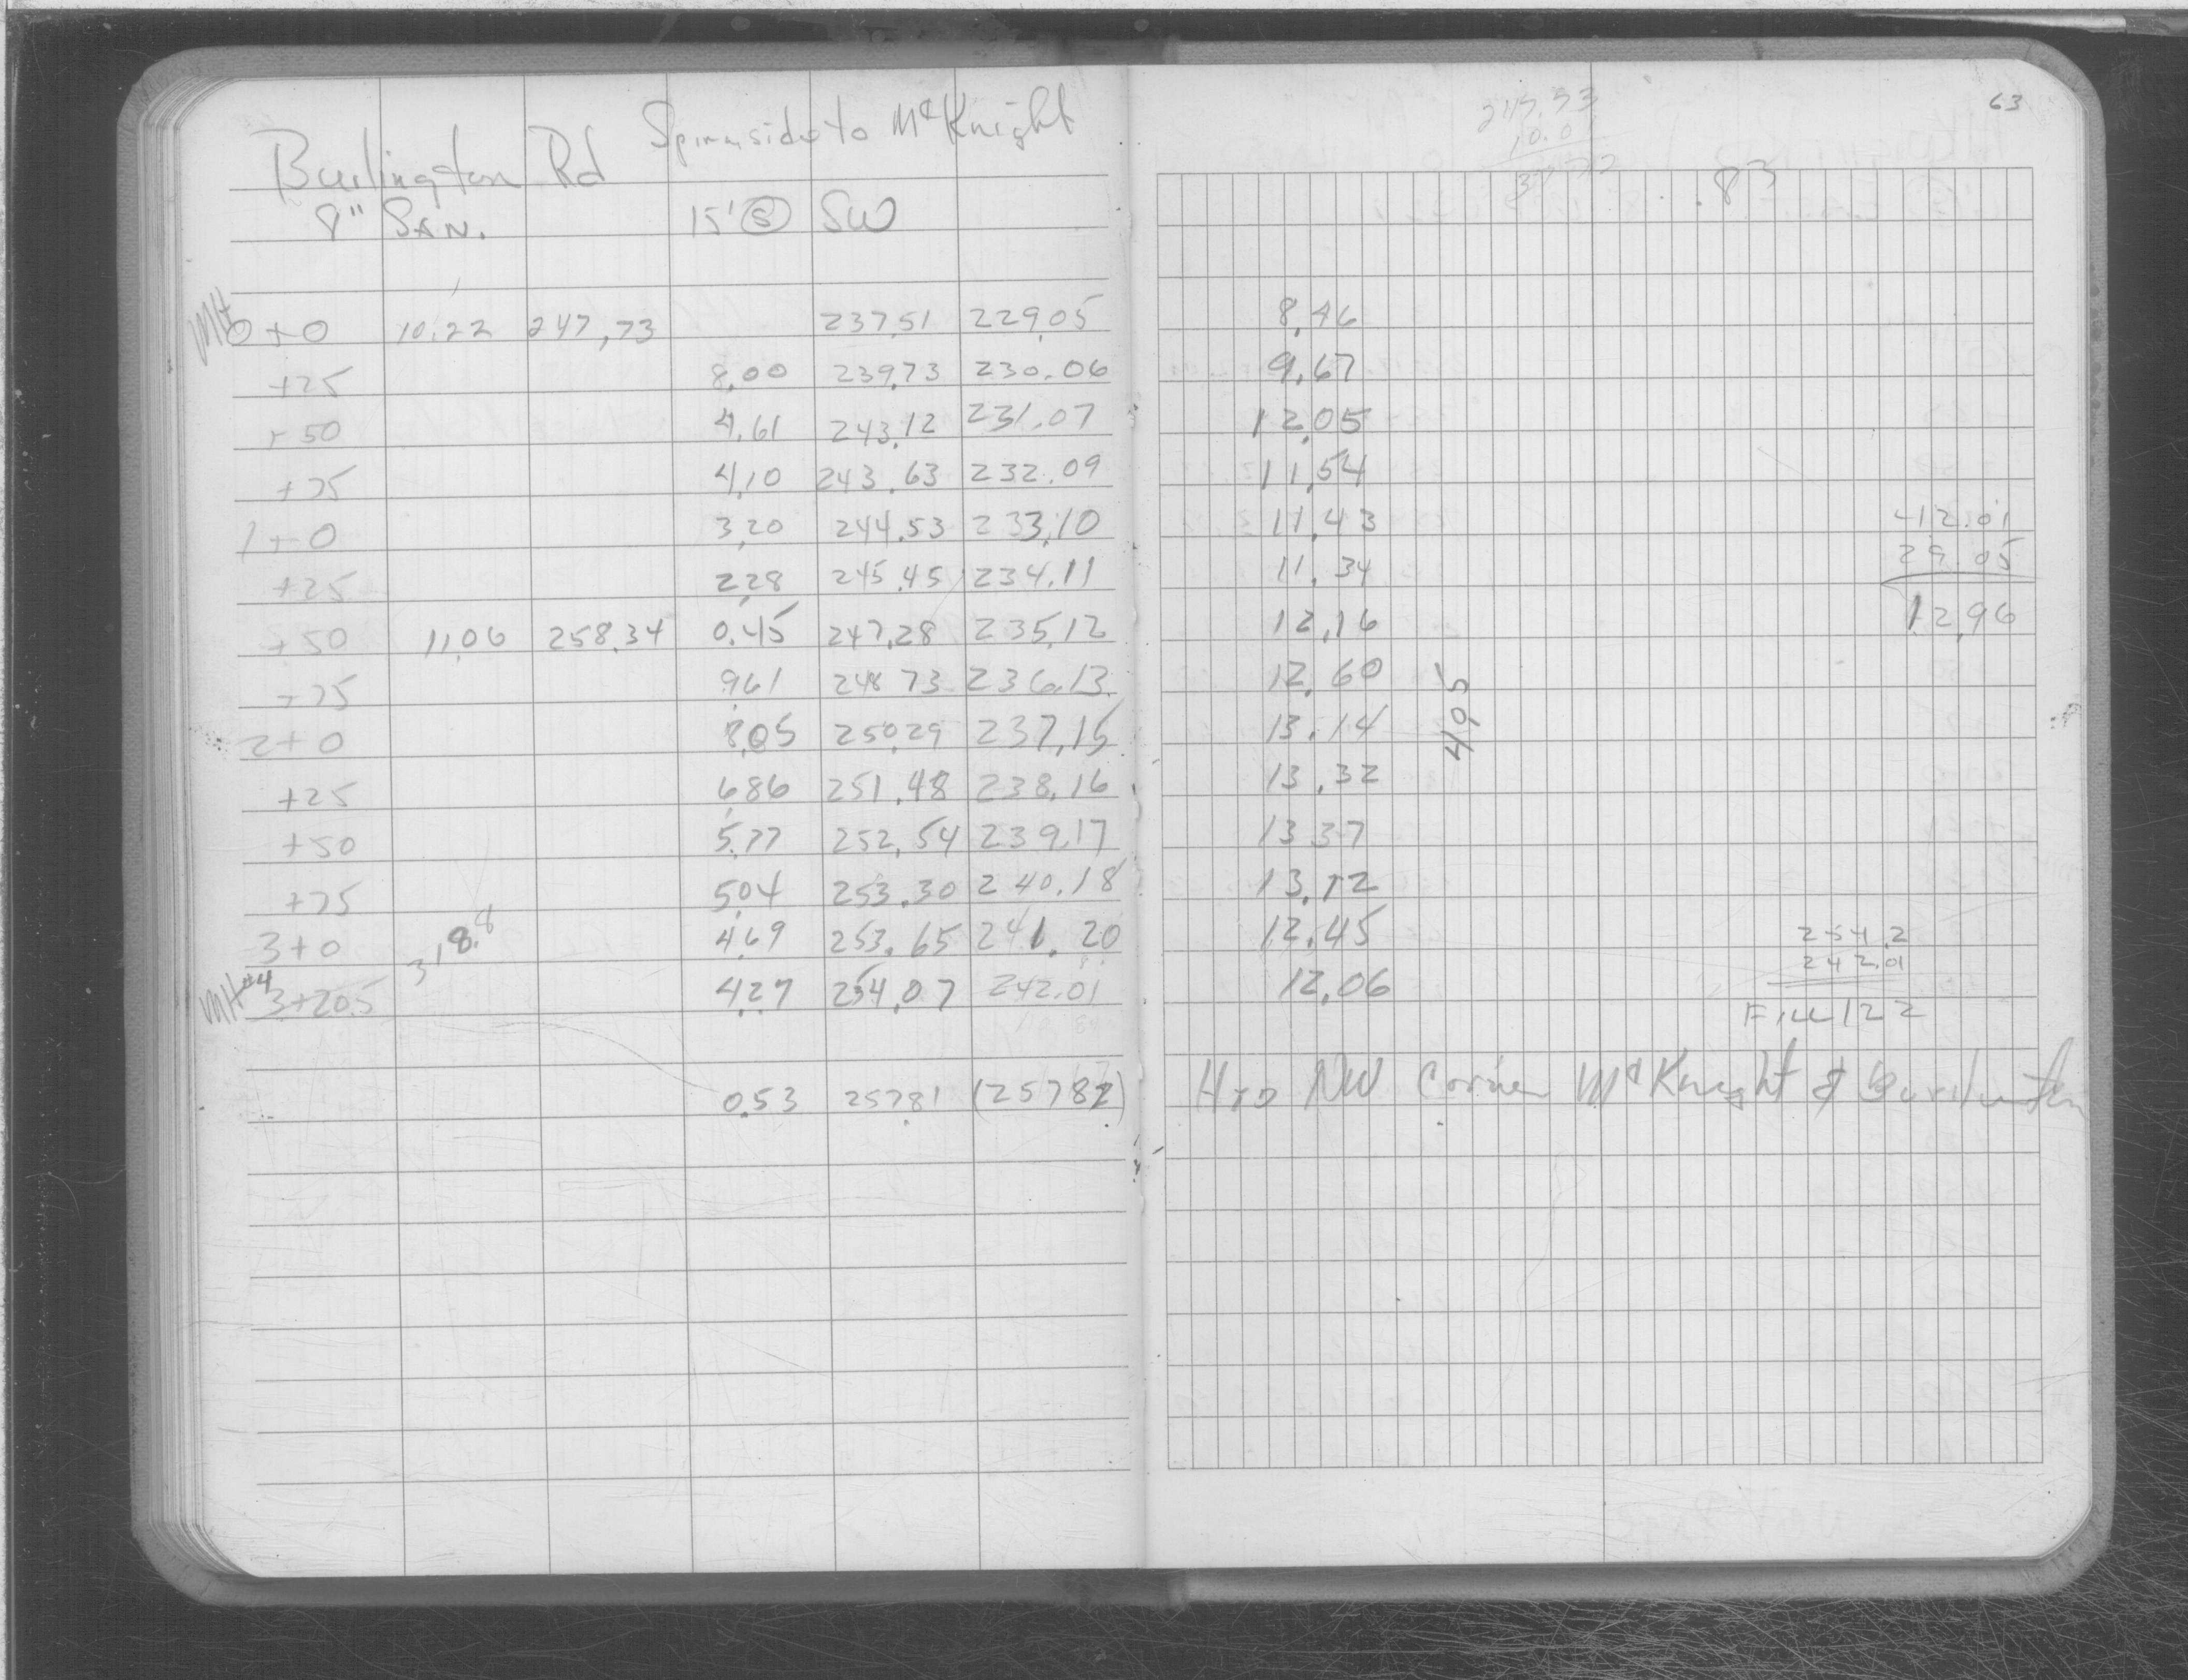 Burlington Rd Spirnside to McKnight
8" SAN. 15' Ⓢ SW
MH 0+0 10.22 247.73 237.51 229.05
+25 8.00 239.73 230.06
+50 4.61 243.12 231.07
+75 4.10 243.63 232.09
1+0 3.20 244.53 233.10
+25 2.28 245.45 234.11
+50 11.06 258.34 0.45 247.28 235.12
+75 9.61 248.73 236.13
2+0 8.05 250.29 237.15
+25 6.86 251.48 238.16
+50 5.77 252.54 239.17
+75 5.04 253.30 240.18
3+0 318.8 4.69 253.65 241.20
MH#4 3+20.5 4.27 254.07 242.01
0.53 257.81 (257.82)
63
247.73
10.01
.83
8.46
9.67
12.05
11.54
11.43
11.34
12.16
12.60
13.14
13.32
13.37
13.12
12.45
12.06
4.05
42.01
29.05
12.96
254.2
242.01
Fill 122
Hyd NW Corner McKnight & Burlington